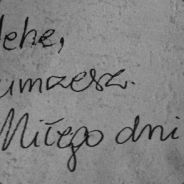 umrzesz.
Miłego dni